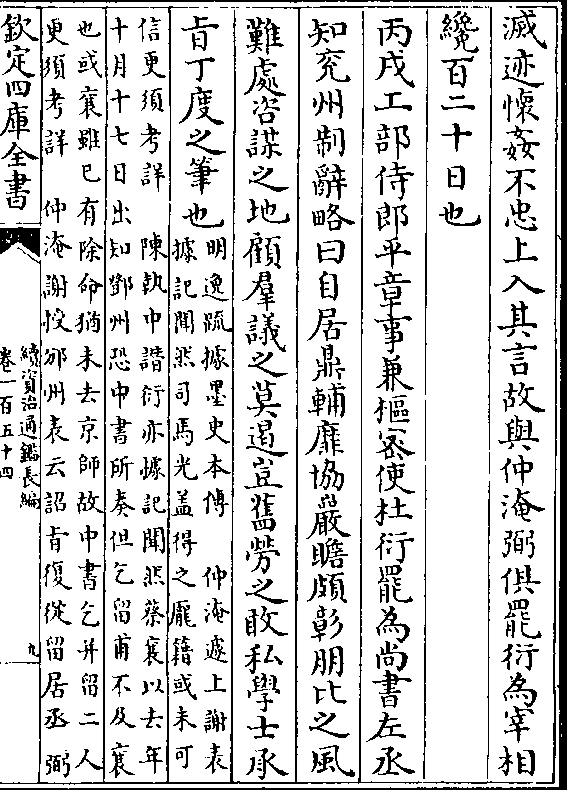 滅迹懷姦不忠上入其言故與仲淹弼俱罷衍為宰相
纔百二十日也
丙戌工部侍郎平章事兼樞密使杜衍罷為尚書左丞
知兖州制辭略曰自居鼎輔靡協嚴瞻頗彰朋比之風
難處咨謀之地顧羣議之莫遏豈舊勞之敢私學士承
㫖丁度之筆也
明逸䟽據墨史本傳 仲淹遽上謝表
據記聞然司馬光盖得之龎籍或未可
信更須考詳 陳執中譛衍亦據記聞然蔡襄以去年
十月十七日出知鄧州恐中書所奏但乞留甫不及襄
也或襄雖已有除命猶未去京師故中書乞并留二人
更須考詳 仲淹謝授邠州表云詔㫖復從留居丞弼
欽定四庫全書
續資治通鑑長編
卷一百五十四
九